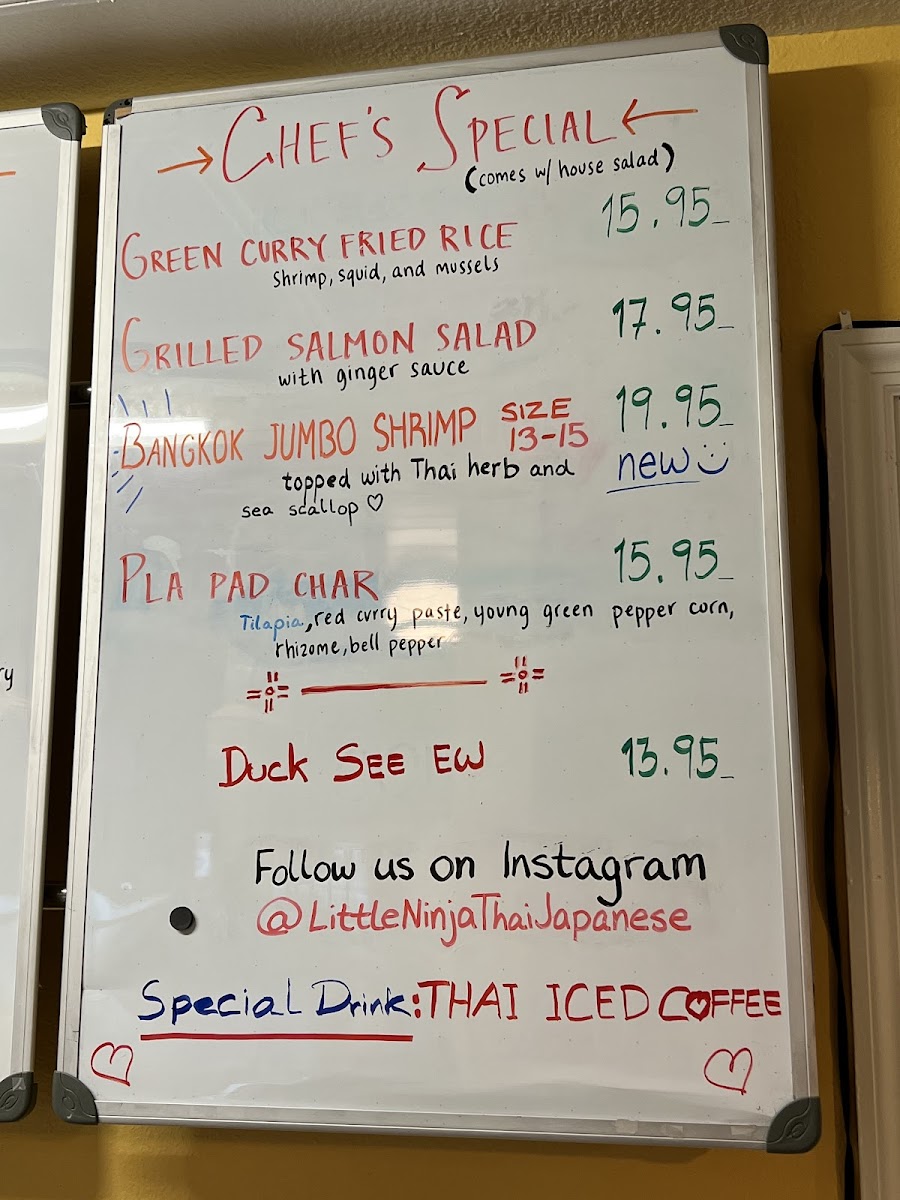 → CHEF'S SPECIAL ←
(comes w/ house salad)
GREEN CURRY FRIED RICE 15.95
Shrimp, squid, and mussels
GRILLED SALMON SALAD 17.95
with ginger sauce
BANGKOK JUMBO SHRIMP SIZE 13-15 19.95
topped with Thai herb and new
sea scallop ♡
PLA PAD CHAR 15.95
Tilapia, red curry paste, young green pepper corn,
rhizome, bell pepper
DUCK SEE EW 13.95
Follow us on Instagram
@LittleNinjaThaiJapanese
Special Drink: THAI ICED COFFEE
ry